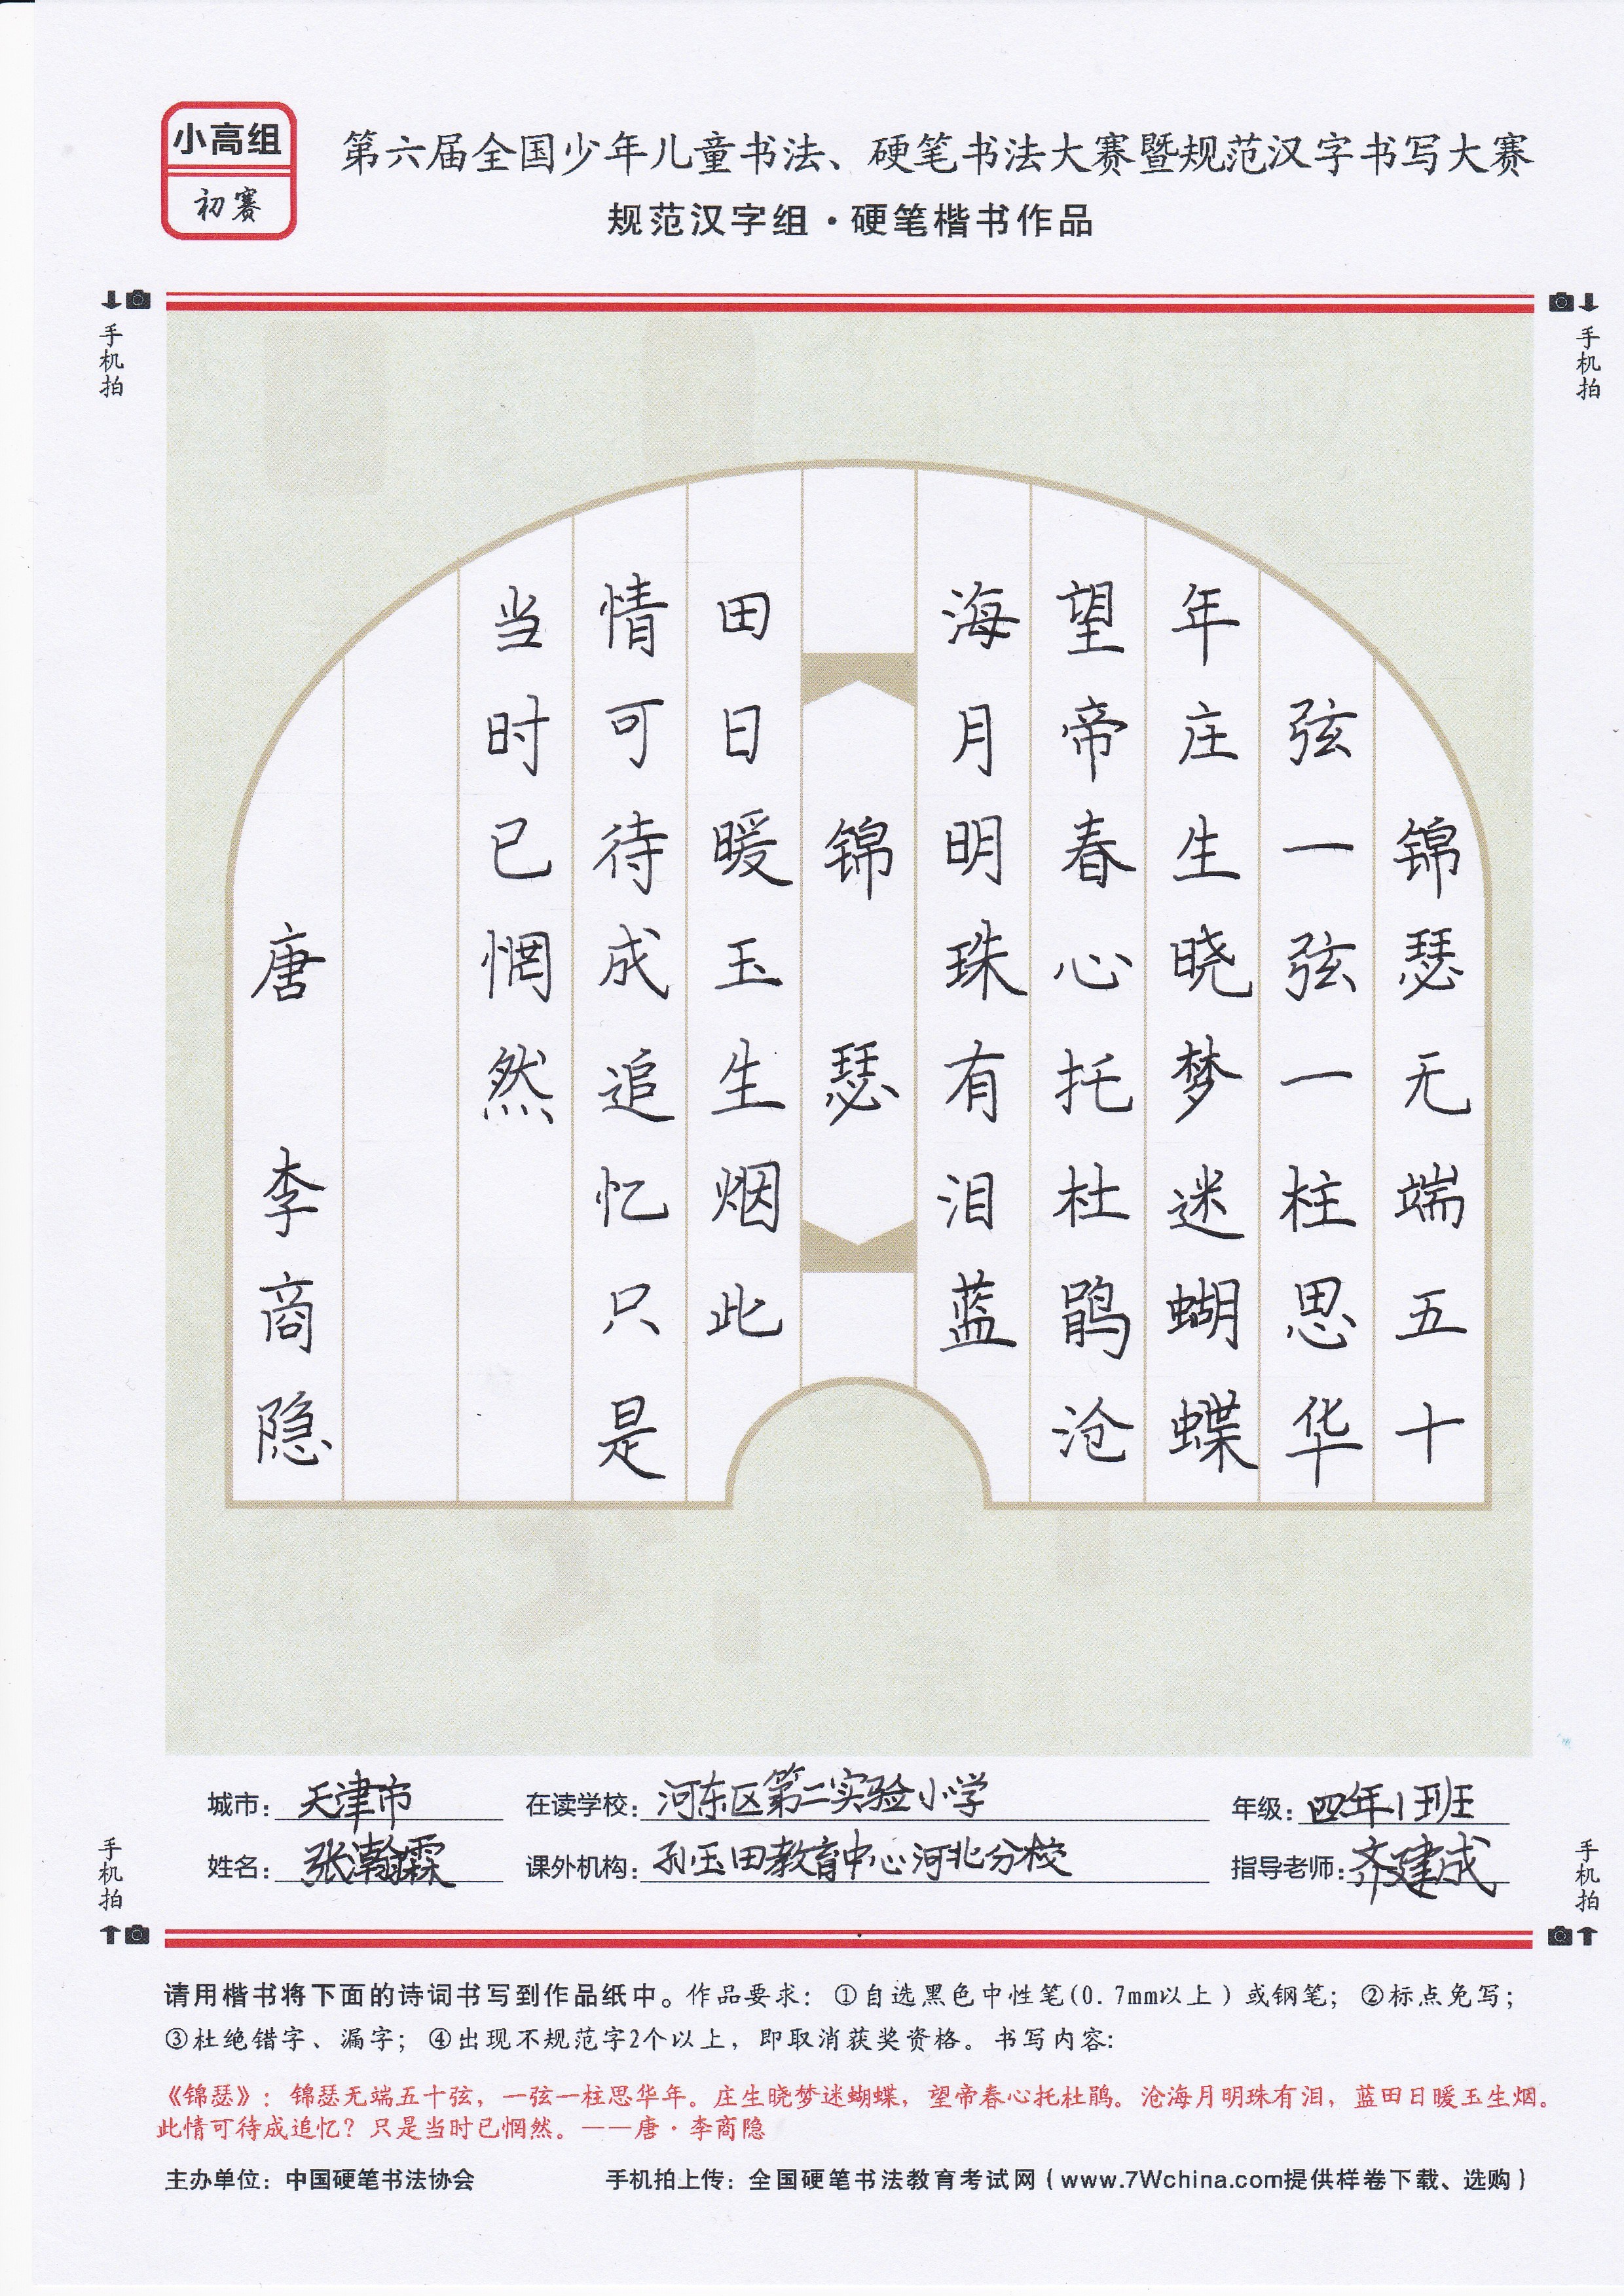 小高组
初赛
第六届全国少年儿童书法、硬笔书法大赛暨规范汉字书写大赛
规范汉字组·硬笔楷书作品
手机拍
手机拍
锦瑟无端五十
弦一弦一柱思华
年庄生晓梦迷蝴蝶
望帝春心托杜鹃沧
海月明珠有泪蓝
锦瑟
田日暖玉生烟此
情可待成追忆只是
当时已惘然
唐李商隐
城市：天津市 在读学校：河东区第二实验小学 年级：四年1班
姓名：张瀚霖 课外机构：孙玉田教育中心河北分校 指导老师：齐建成
手机拍
手机拍
请用楷书将下面的诗词书写到作品纸中。作品要求：①自选黑色中性笔(0.7mm以上)或钢笔；②标点免写；
③杜绝错字、漏字；④出现不规范字2个以上，即取消获奖资格。书写内容:
《锦瑟》：锦瑟无端五十弦，一弦一柱思华年。庄生晓梦迷蝴蝶，望帝春心托杜鹃。沧海月明珠有泪，蓝田日暖玉生烟。
此情可待成追忆？只是当时已惘然。——唐·李商隐
主办单位：中国硬笔书法协会 手机拍上传：全国硬笔书法教育考试网（www.7Wchina.com提供样卷下载、选购）